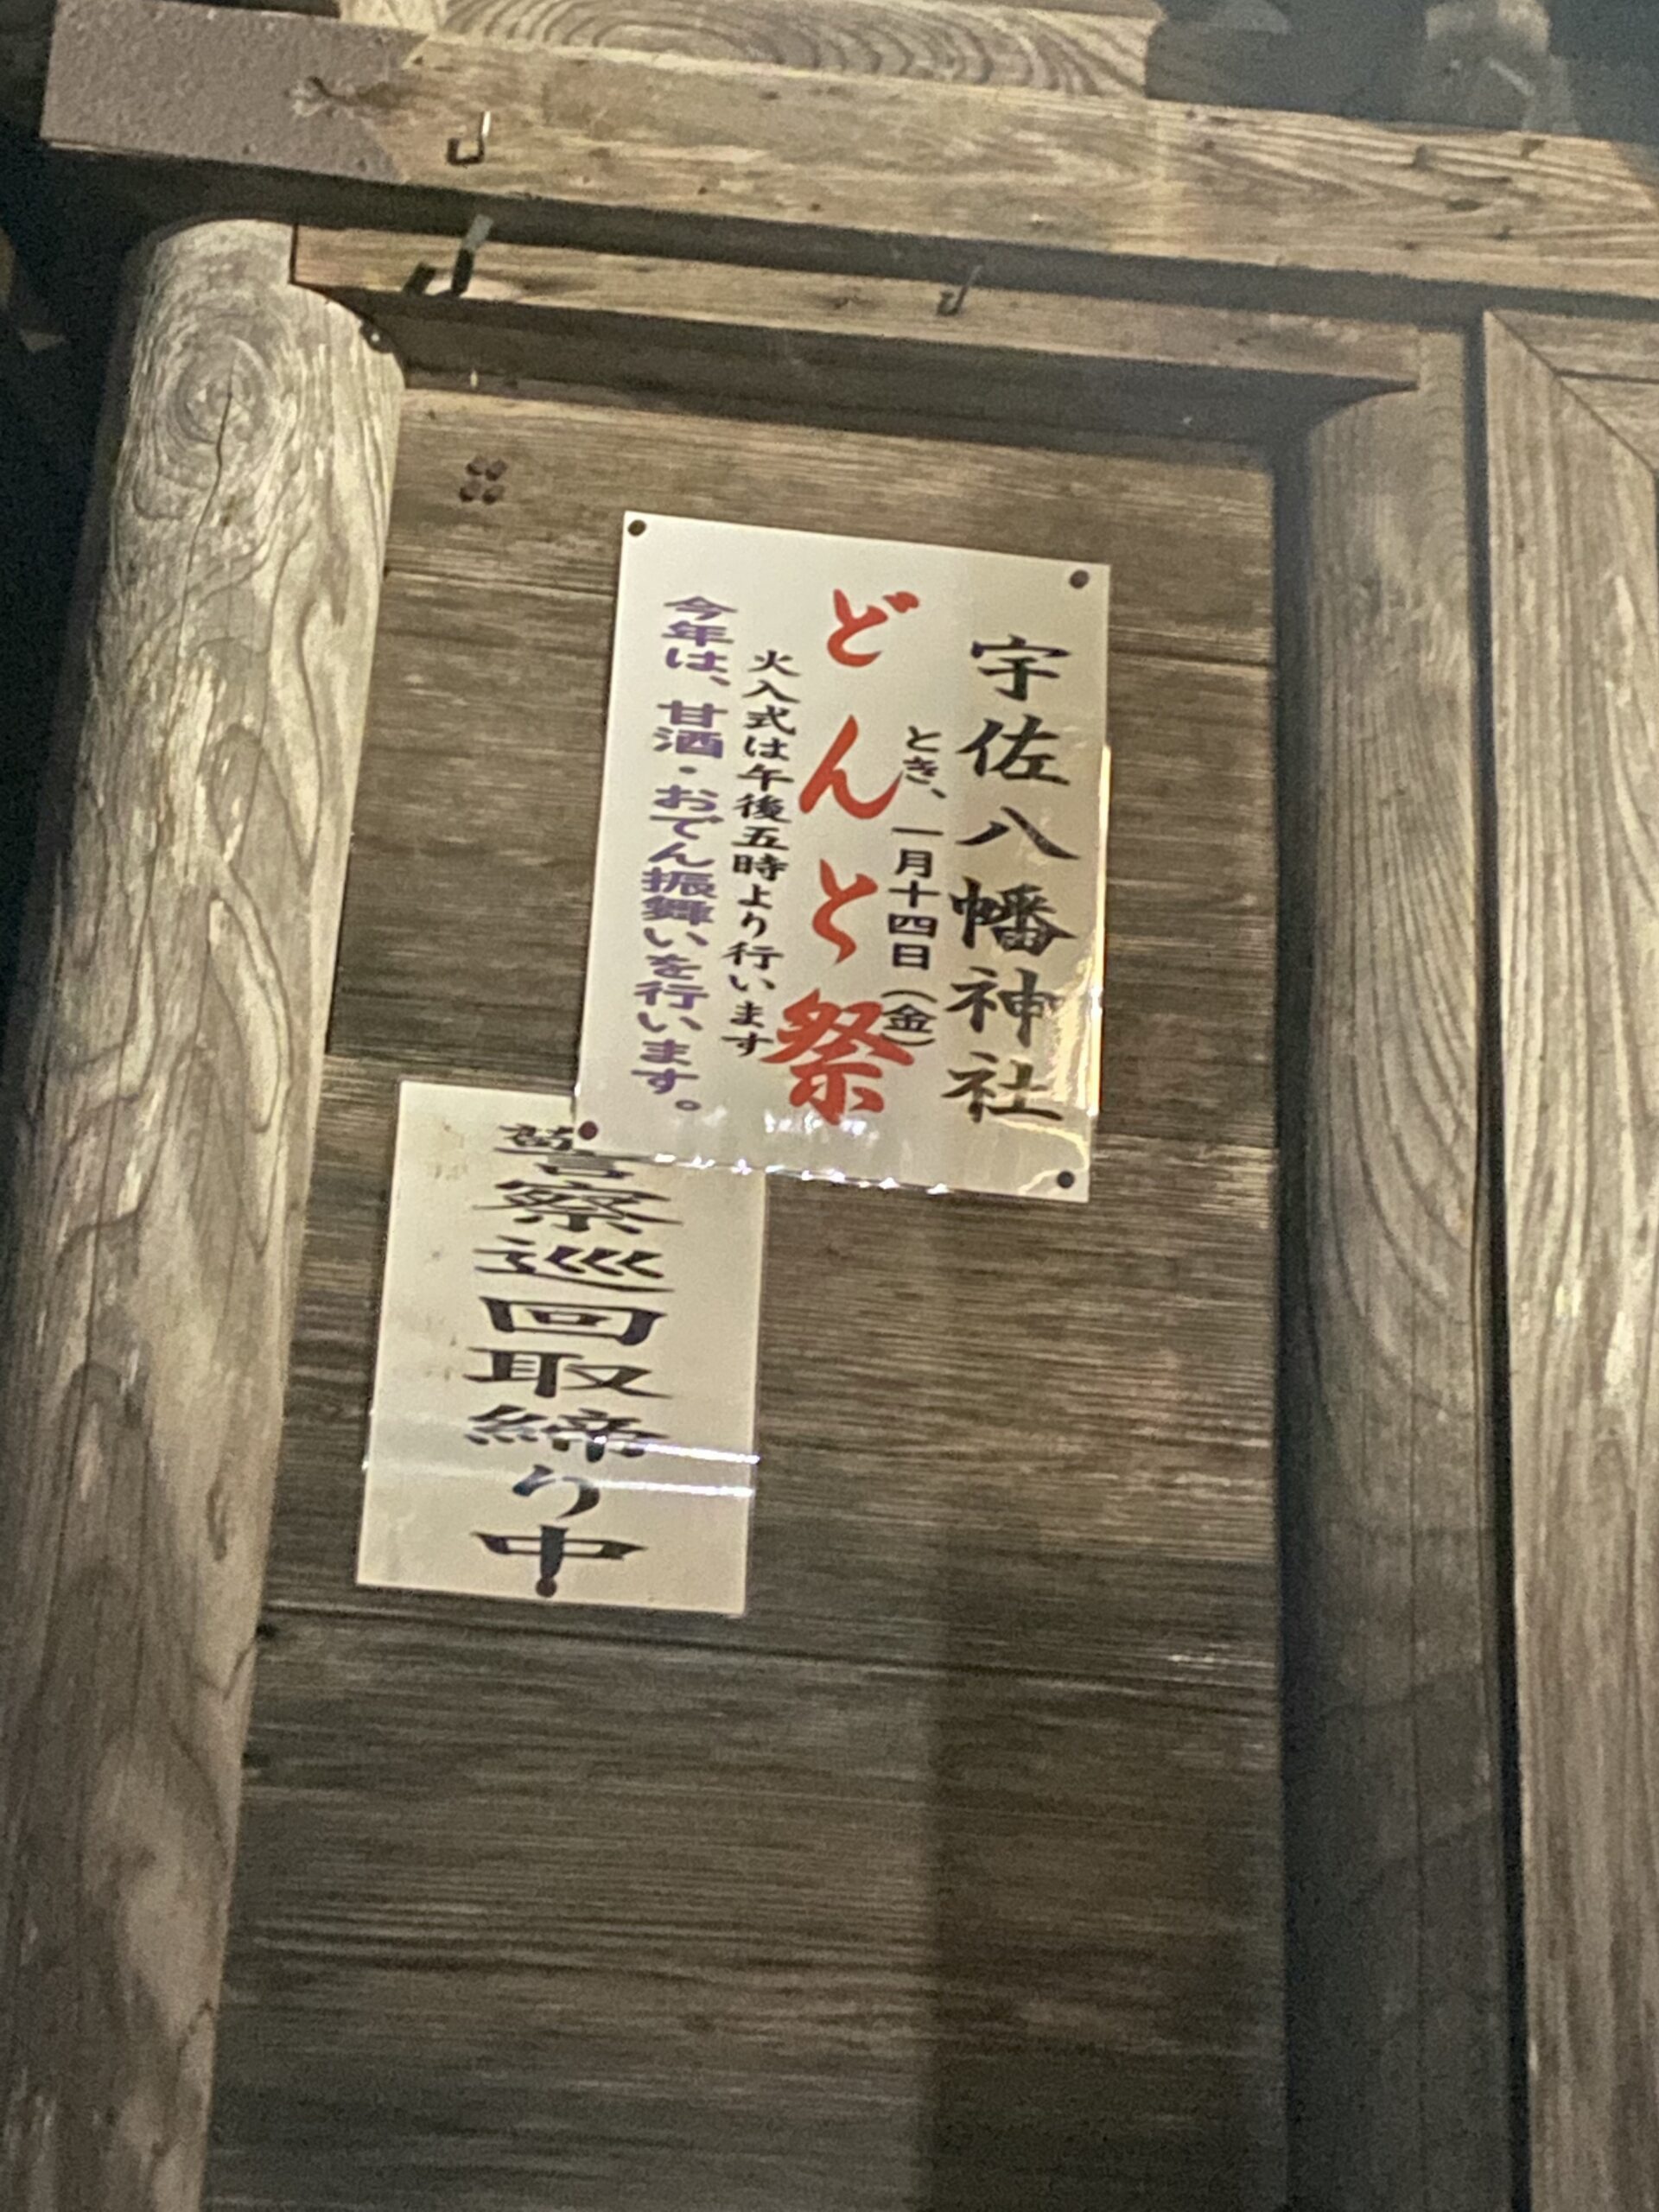 宇佐八幡神社
とき、一月十四日(金)
どんと祭
火入式は午後五時より行います
今年は、甘酒・おでん振舞いを行います。
警察巡回取締り中